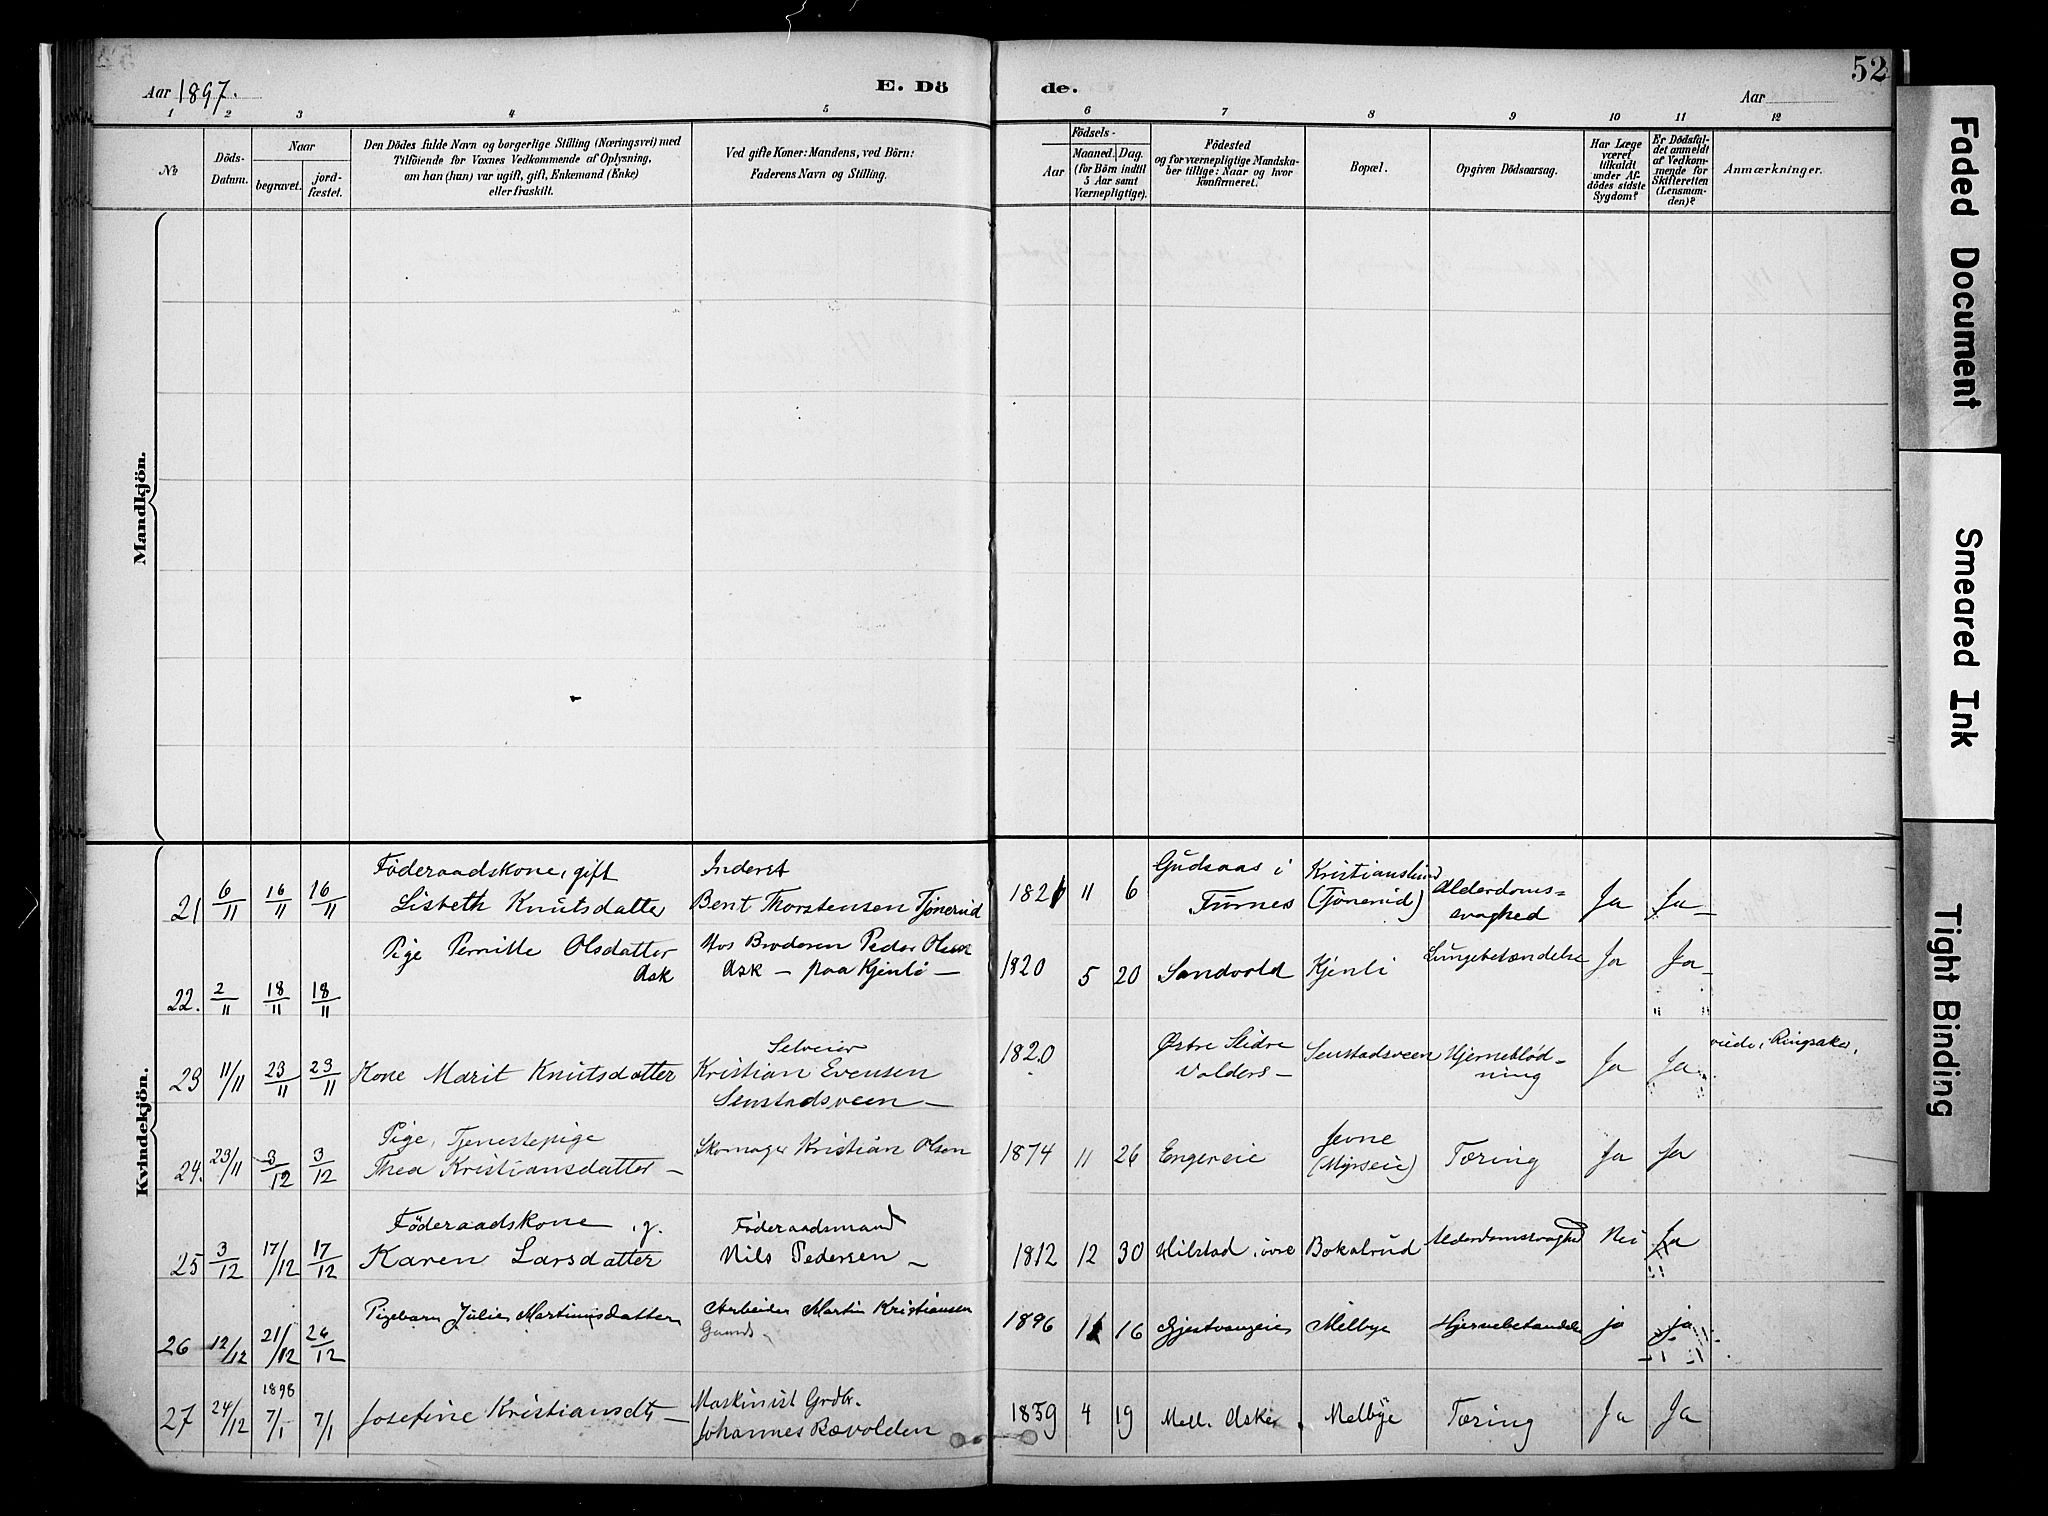 Aar 1897.
E. Dö
de.
Aar
52
1 2 3 4 5 6 7 8 9 10 11 12
No
Döds-
Datum.
Naar
begravet.
jord-
fæstet.
Den Dödes fulde Navn og borgerlige Stilling (Næringsvei) med
Tilföiende for Voxnes Vedkommende af Oplysning,
om han (hun) var ugift, gift, Enkemand (Enke)
eller fraskilt.
Ved gifte Koner: Mandens, ved Börn:
Faderens Navn og Stilling.
Födsels-
Aar
Maaned. Dag.
(for Börn indtil
5 Aar samt
Værnepligtige).
Födested
og for værnepligtige Mandska-
ber tillige: Naar og hvor
konfirmeret.
Bopæl.
Opgiven Dödsaarsag.
Har Læge
været
tilkaldt
under Af-
dödes sidste
Sygdom?
Er Dödsfal-
det anmeldt
af Vedkom-
mende for
Skifteretten
(Lensman-
den)?
Anmærkninger.
Mandkjön.
Kvindekjön.
21 6/11 16/11 16/11
Föderaadskone, gift
Lisbeth Knutsdatter
Inderst
Bent Thorstensen Tjönerud
1821 11 6
Gudsaas i
Furnes
Kristianslund
(Tjönerud)
Alderdoms=
svaghed
Ja Ja
22. 2/11 18/11 18/11
Pige Pernille Olsdatter
Ask
Hos Broderen Peder Olsen
Ask — paa Kjenli —
1820 5 20 Sandvold Kjenli Lungebetændelse Ja Ja
23 11/11 23/11 23/11
Kone Marit Knutsdatter
Selveier
Kristian Evensen
Senstadsveen —
1820
Østre Slidre
Valders —
Senstadsveen
Hjerneblöd-
ning
Ja Ja
24. 23/11 3/12 3/12
Pige, Tjenestepige
Thea Kristiansdatter —
Skomager Kristian Olsen
1874 11 26 Engereie
Jevne
(Myrseie)
Tæring Ja Ja
25 3/12 17/12 17/12
Föderaadskone, g.
Karen Larsdatter
Föderaadsmand
Nils Pedersen —
1812 12 30 Bokalrud Alderdomssvaghed Nei Ja
26 12/12 21/12
Pigebarn Julie Martinusdatter
Arbeider Martin Kristiansen
1896 16 Gjestvangeie Melbye Hjernebetændelse ja ja
27 24/12 1898 7/1 7/1
Josefine Kristiansdt, —
Maskinist Grdbr.
Johannes Rævolden
1859 4 19 Mell. Asker Melbye Tæring Ja Ja
Faded Document
Smeared Ink
Tight Binding